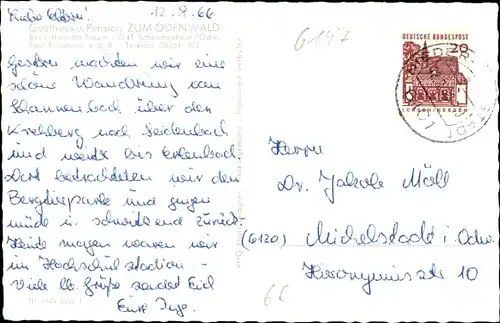 Liebe Eltern! 12.8.66
Gasthaus u. Pension ZUM ODENWALD
Gestern machten wir eine
schöne Wanderung von
Schannenbach über den
Krehberg nach Seidenbach
und weiter bis Erlenbach.
Dort betrachteten wir den
Bergtierpark und gingen
müde u. schwitzend zurück.
Heute morgen waren wir
im Hochschulstadion -
Viele lb. Grüße sendet Euch
Eure Inge.
G 147
DEUTSCHE BUNDESPOST
20
LORSCH/HESSEN
Herrn
Dr. Jakob Möll
(6120) Michelstadt i. Odw.
Hieronymusstr 10
66